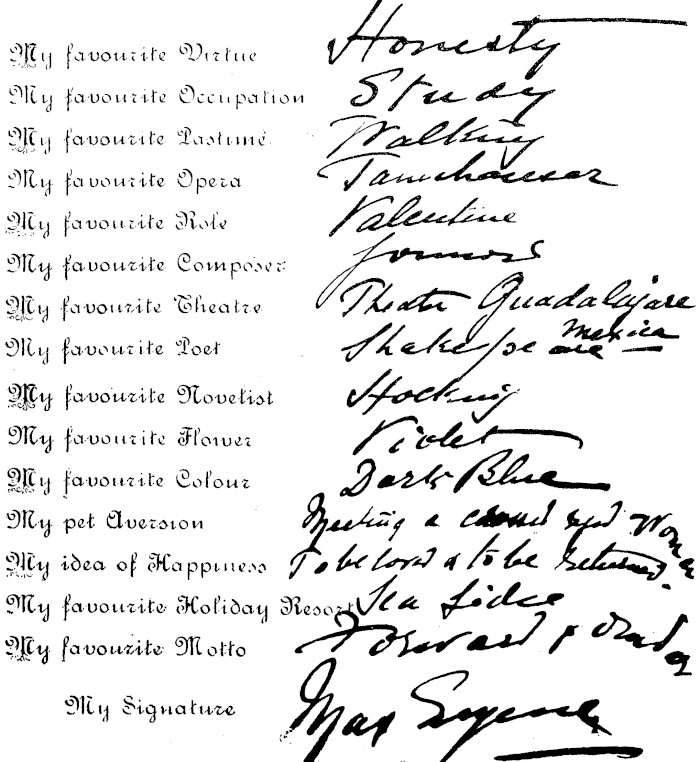 My favourite Virtue Honesty
My favourite Occupation Study
My favourite Pastime Walking
My favourite Opera Tannhauser
My favourite Role Valentine
My favourite Composer Gounod
My favourite Theatre Theatre Guadalajara
Mexico
My favourite Poet Shakespeare
My favourite Novelist Hocking
My favourite Flower Violet
My favourite Colour Dark Blue
My pet Aversion Meeting a eyed Woman
My idea of Happiness To be loved & to be returned.
My favourite Holiday Resort Sea Side
My favourite Motto Forward &
My Signature Max Eugene